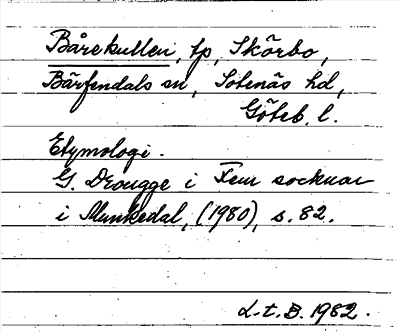 Bårekullen, tp, Skårbo,
Bärfendals sn, Sotenäs hd,
Göteb. l.
Etymologi.
G. Drougge i Fem socknar
i Munkedal, (1980), s. 82.
L-t. B. 1982.